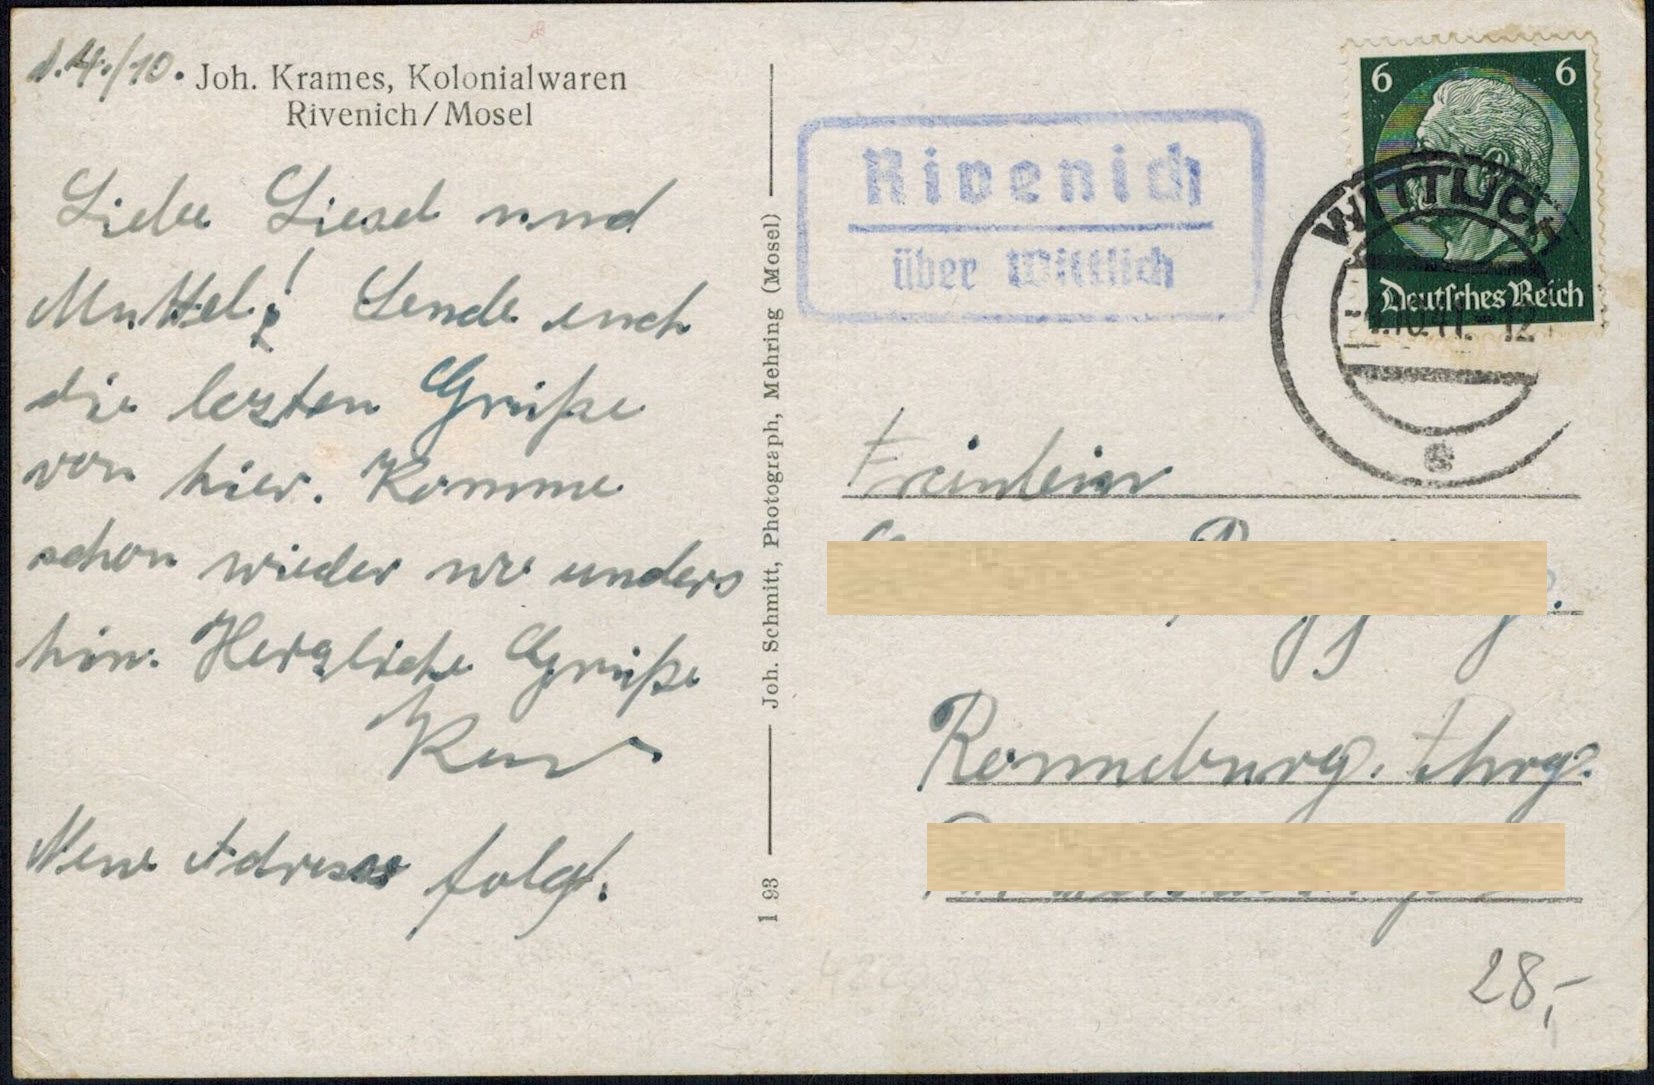 d. 4./10.
Joh. Krames, Kolonialwaren
Rivenich/Mosel
Liebe Liesel und
Muttel! Sende euch
die lezten Grüße
von hier. Komme
schon wieder wo anders
hin. Herzliche Grüße
Neue Adresse folgt.
Joh. Schmitt, Photograph, Mehring (Mosel)
1 93
Rivenich
über Wittlich
6 6
Deutsches Reich
WITTLICH
.10.41. 12
Fräulein
Ronneburg. Thrg.
28,-